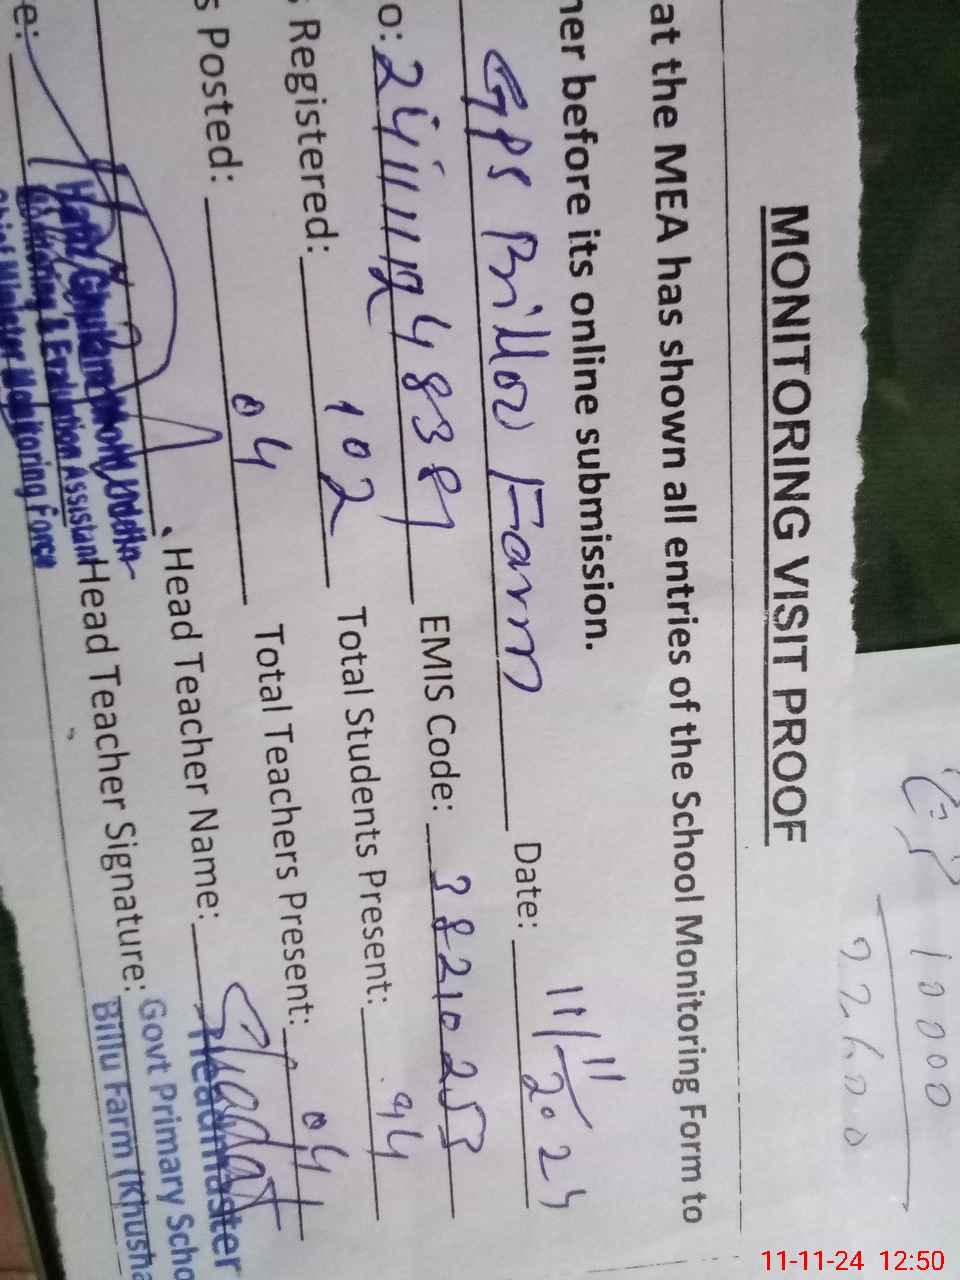 10000
22600
MONITORING VISIT PROOF
at the MEA has shown all entries of the School Monitoring Form to
her before its online submission.
GPS Billoo Farm Date: 11/11/2024
o: 2411 EMIS Code: 38210253
Registered: 102 Total Students Present: 94
s Posted: 04 Total Teachers Present: 04
Head Teacher Name:
Headmaster
e: Head Teacher Signature:
Govt Primary Scho
Billu Farm (Khusha
Monitoring & Evaluation Assistant
Chief Minister Monitoring Force
11-11-24 12:50